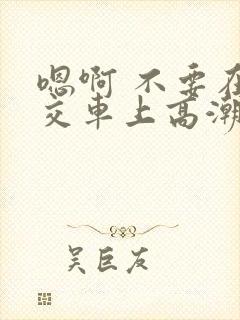 嗯啊 不要在
交车上高潮
吴巨友